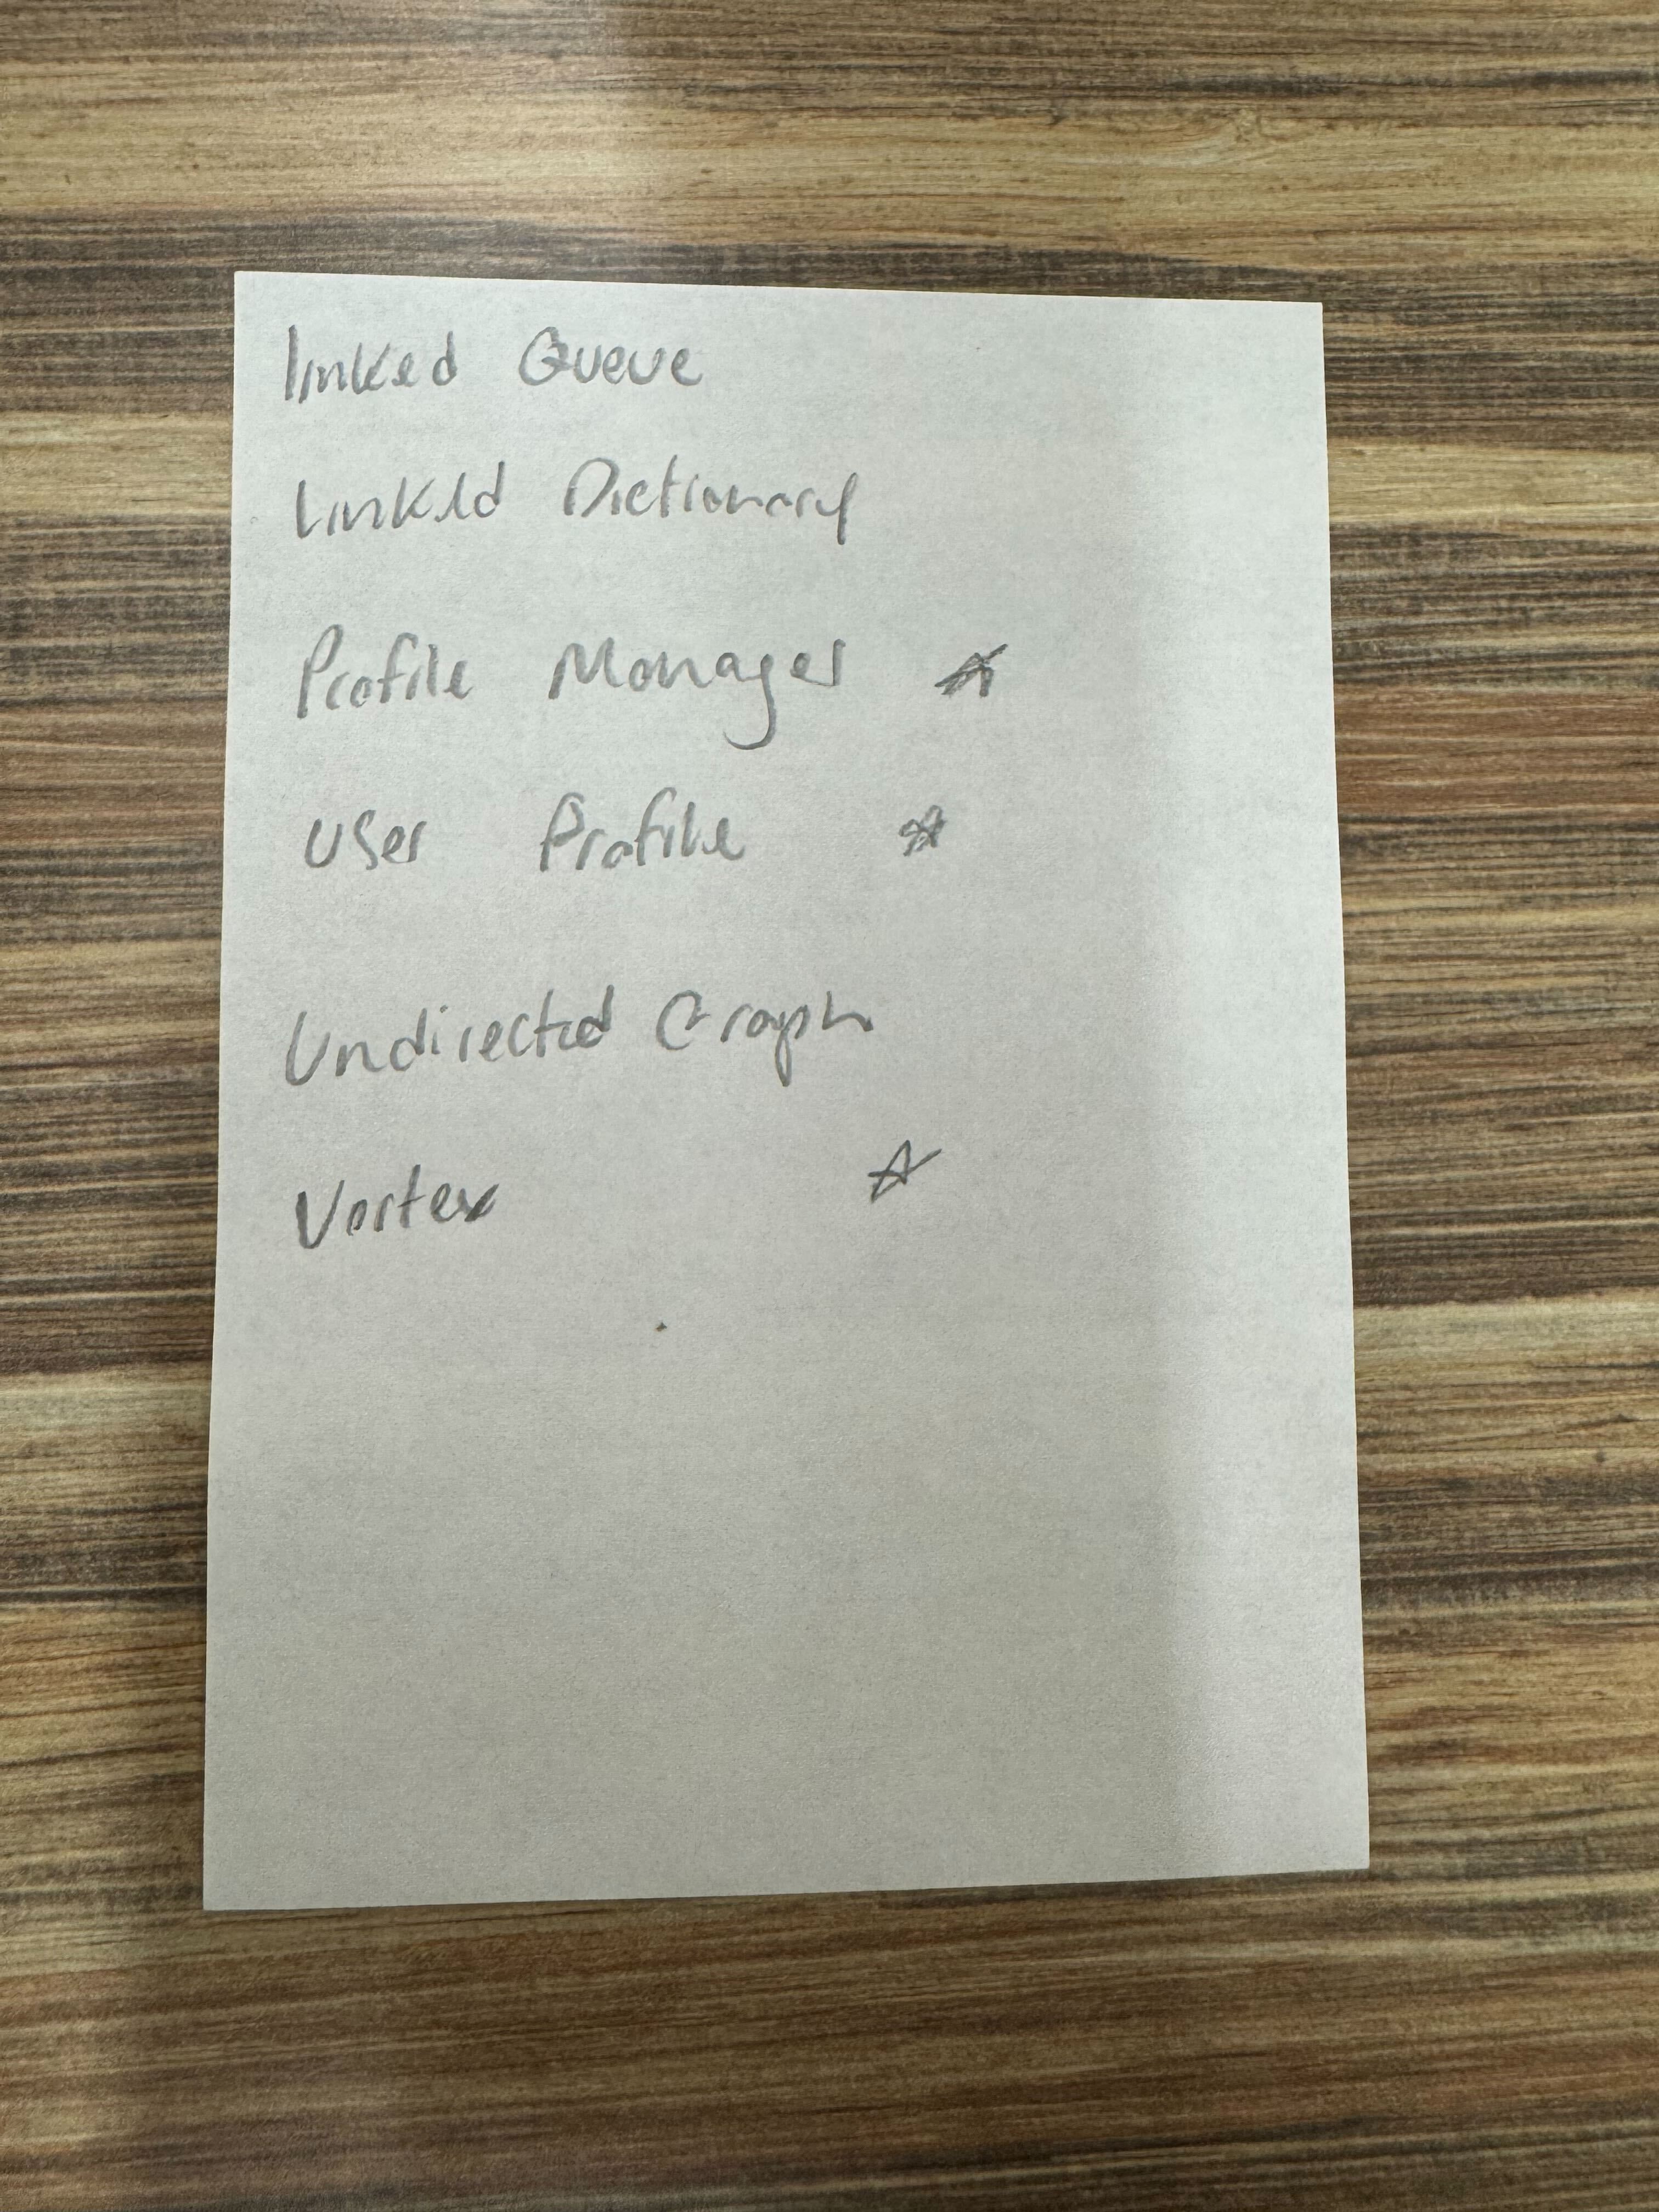 linked Queue
Linked Dictionary
Profile Manager ☆
User Profile ☆
Undirected Graph
Vortex ☆